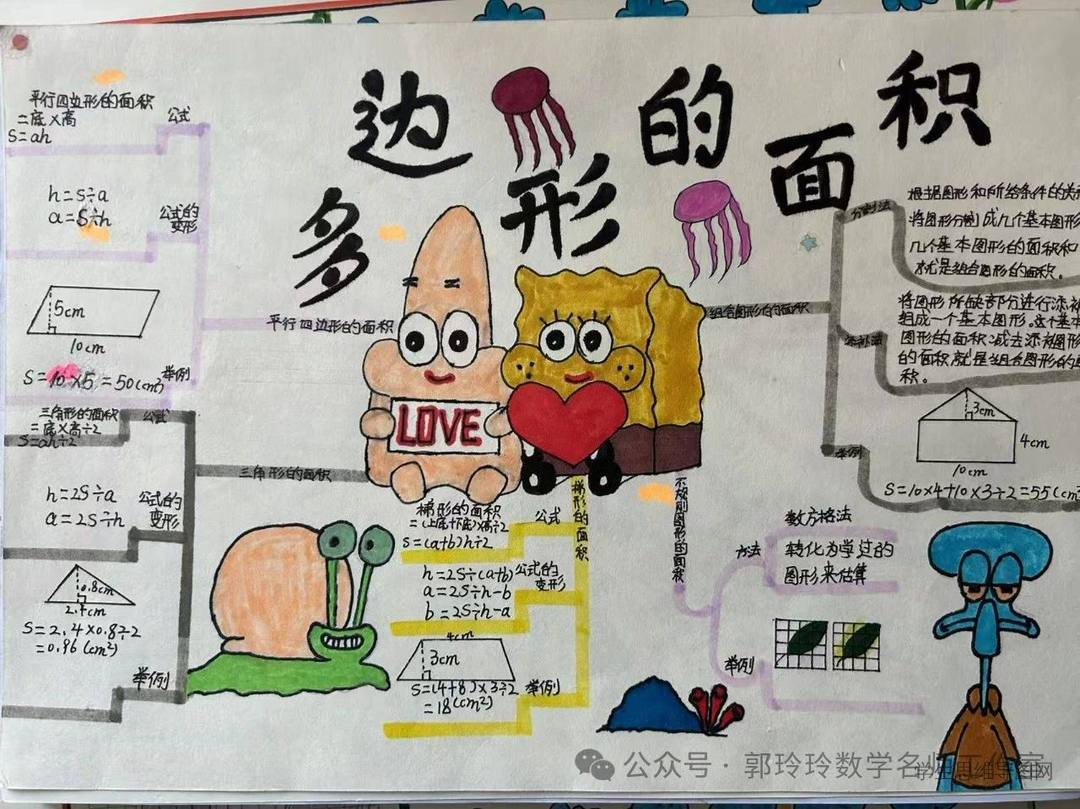 多边形的面积
平行四边形的面积
=底×高
S=ah
公式
h=S÷a
a=S÷h
公式的
变形
5cm
10cm
S=10×5=50(cm²)
举例
平行四边形的面积
三角形的面积
=底×高÷2
S=ah÷2
公式
h=2S÷a
a=2S÷h
公式的
变形
0.8cm
2.4cm
S=2.4×0.8÷2
=0.96(cm²)
举例
三角形的面积
LOVE
梯形的面积
=(上底+下底)×高÷2
S=(a+b)h÷2
公式
h=2S÷(a+b)
a=2S÷h-b
b=2S÷h-a
公式的
变形
4cm
3cm
S=(4+8)×3÷2
=18(cm²)
举例
梯形的面积
不规则图形的面积
方法
数方格法
转化为学过的
图形来估算
举例
组合图形的面积
分割法
根据图形和所给条件的关
将图形分割成几个基本图形
几个基本图形的面积和
就是组合图形的面积。
添补法
将图形所缺部分进行添补
组成一个基本图形。这个基本
图形的面积减去添补图形
的面积就是组合图形的面
积。
举例
3cm
4cm
10cm
S=10×4+10×3÷2=55(cm
公众号·郭玲玲数学名师工作室
学生思维导图网